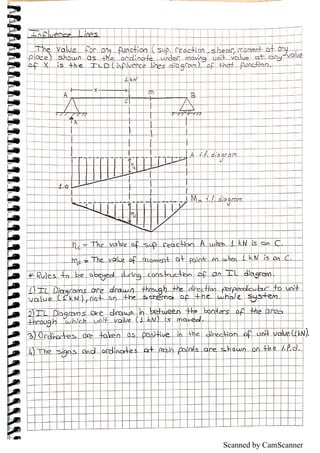 Influence Lines
The value for any function (sup. reaction, shear, moment at any
place) shown as the ordinate under moving unit value at any value
of X is the ILD (Influence lines diagram) of that function.
1kN
x
m
A
B
C
A
A i.l. diagram
1.0
Mm i.l. diagram
ηc = The value of sup reaction A when 1 kN is on C.
mc = The value of moment at point m when 1 kN is on C.
* Rules to be obeyed during construction of an IL diagram.
1) IL Diagrams are drawn through the direction perpendicular to unit
value (1kN), not on the schema of the whole system.
2) IL Diagrams are drawn in between the borders of the area
through which unit value (1 kN) is moved.
3) Ordinates are taken as positive in the direction of unit value (1kN).
4) The signs and ordinates at main points are shown on the I.l.d.
Scanned by CamScanner